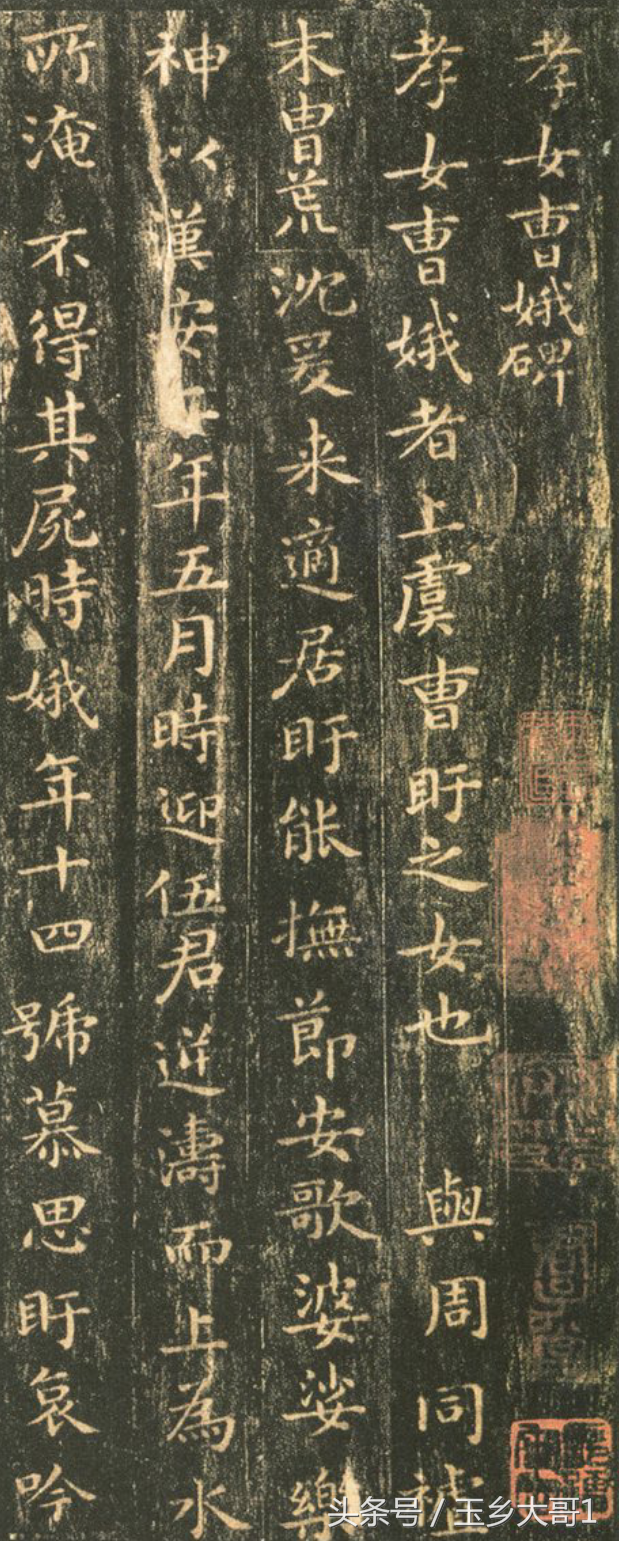 孝女曹娥碑
孝女曹娥者上虞曹盱之女也其先與周同祖
末胄荒沈爰来適居盱能撫節安歌婆娑樂
神以漢安二年五月時迎伍君逆濤而上為水
所淹不得其屍時娥年十四號慕思盱哀吟
头条号 / 玉乡大哥1